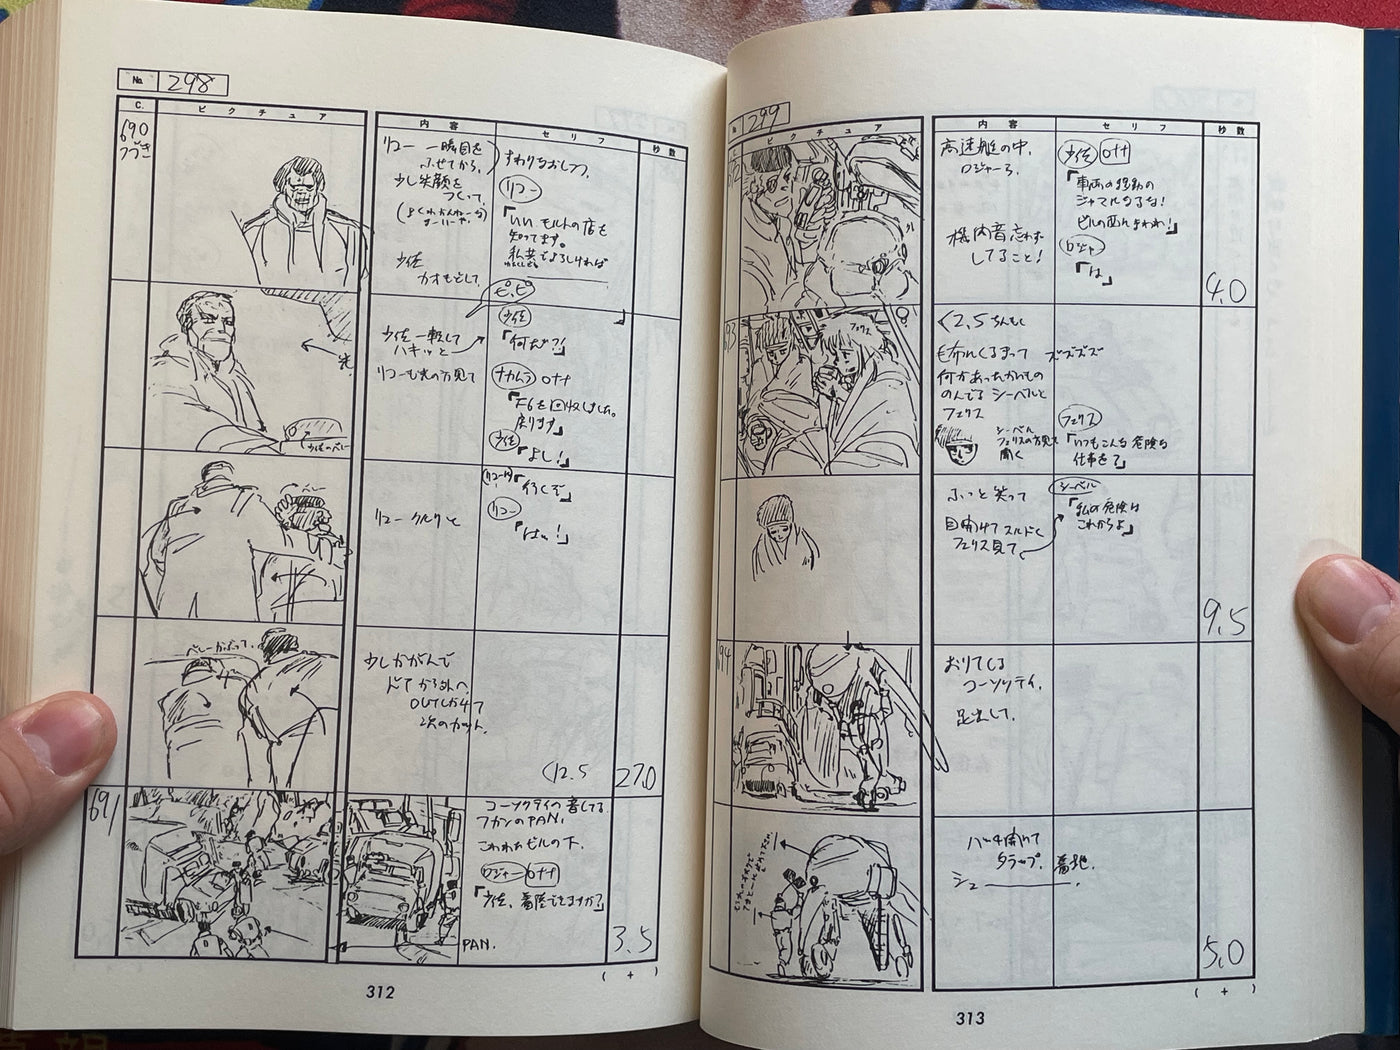 No. 298
C.
ピクチュア
内容
セリフ
秒数
690
つづき
リコー 一瞬目を
ふせてから、
少し笑顔を
つくって、
少佐
カオもどして
すわりなおしつつ、
リコー
「いい モルトの店を
知ってます。
私共でよろしければ
ピ、ピ
少佐 一転して
ハキッと
リコーも光の方見て
少佐
「何だ?!」
ナカムラ off
「F6を回収しました。
戻ります」
少佐
「よし!」
光
少佐のベレー
ベレー
リコー クルリと
「行くぞ」
リコー
「はい!」
ベレーかぶって、
少しかがんで
ドアから外へ
OUTしかけて
次のカット、
(12.5
27.0
691
コーソクテイの音してる
フカンのPAN、
こわれたビルの下、
ロジャー off
「少佐、着陸できますか?」
PAN.
3.5
( + )
312
299
ピクチュア
内容
セリフ
秒数
高速艇の中、
ロジャーら、
機内音忘れず
してること!
少佐 off
「車両の移動の
ジャマになるな!
ビルの西にまわれ!」
ロジャ
「は」
4.0
フェリス
<2,5
毛布にくるまって
何かあったかいもの
のんでる シーベルと
フェリス
ズズズズ
シーベル
フェリスの方見て
聞く
フェリス
「いつもこんな危険な
仕事を?」
ふっと笑って
目開けてスルドく
フェリス見て
シーベル
「私の危険は
これからよ」
9.5
694
おりてくる
コーソクテイ、
足出して、
ハッチ開いて
タラップ、 着地.
シュー
5.0
( + )
313